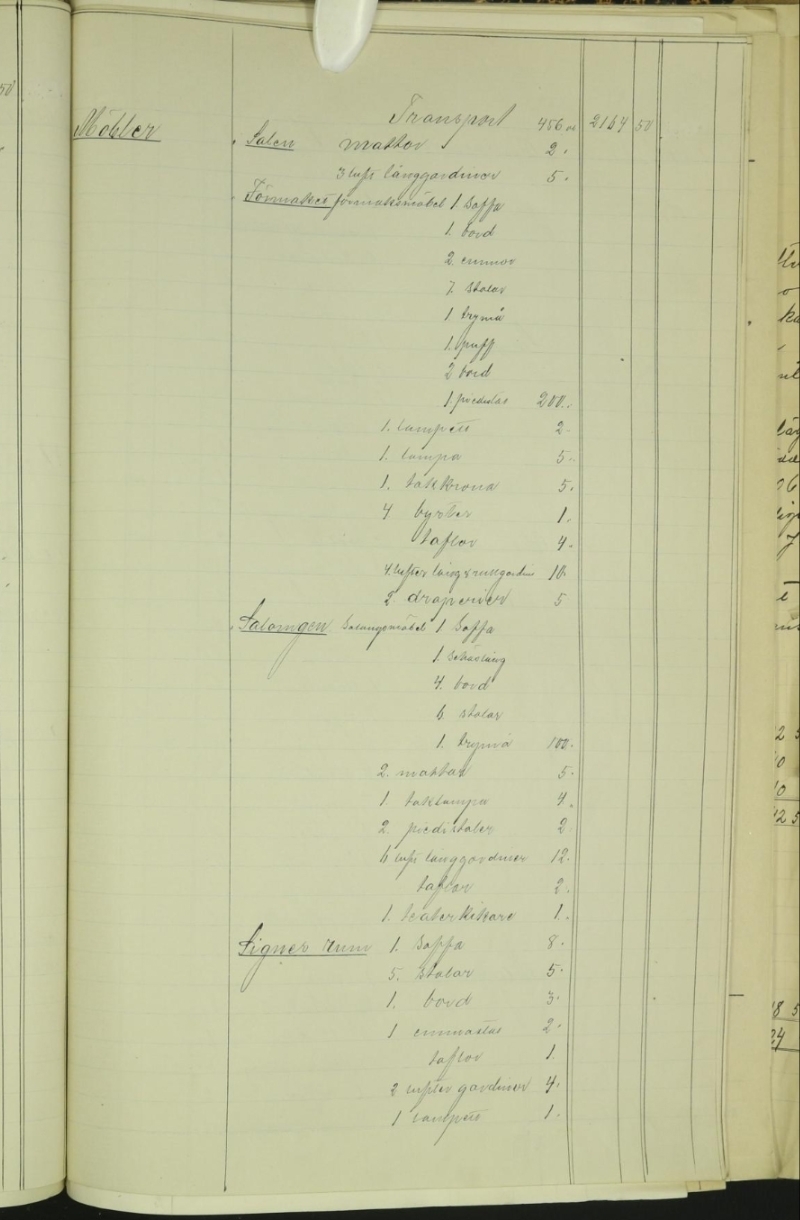 Möbler
Transport 456 2164 50
Salen mattor 2.
3 luft långgardiner 5.
Förmaket förmaksmöbel 1 Soffa
1. bord
2 emmor
7. stolar
1 trymå
1. puff
2 bord
1. piedestal 200.
1. lampett 2.
1. lampa 5.
1. takkrona 5.
4 byster 1.
taflor 4.
4. lufter lång & rullgardin 10.
2. draperier 5
Salongen Salongsmöbel 1 Soffa
1. Schäslång
4. bord
6. stolar
1. trymå 100.
2. mattor 5.
1. taklampa 4.
2. piedistaler 2
6 luft långgardiner 12.
taflor 2.
1. teaterkikare 1.
Signes rum 1. Soffa 8.
5. Stolar 5.
1. bord 3.
1 emmastol 2.
taflor 1.
2 lufter gardiner 4.
1 lampett 1.